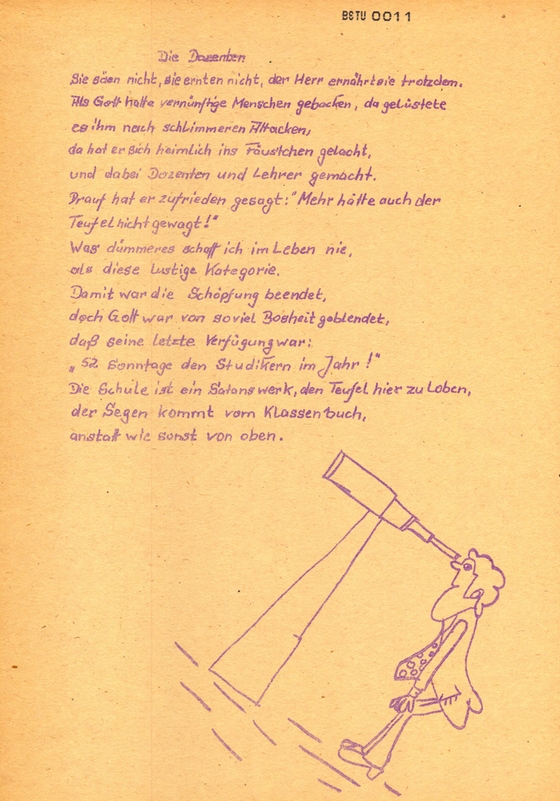 BSTU 0011
Die Dozenten
Sie säen nicht, sie ernten nicht, der Herr ernährt sie trotzdem.
Als Gott hatte vernünftige Menschen gebacken, da gelüstete
es ihm nach schlimmeren Attacken,
da hat er sich heimlich ins Fäustchen gelacht,
und dabei Dozenten und Lehrer gemacht.
Drauf hat er zufrieden gesagt: "Mehr hätte auch der
Teufel nicht gewagt!"
Was dümmeres schaff ich im Leben nie,
als diese lustige Kategorie.
Damit war die Schöpfung beendet,
doch Gott war von soviel Bosheit geblendet,
daß seine letzte Verfügung war:
„52 Sonntage den Studikern im Jahr!"
Die Schule ist ein Satanswerk, den Teufel hier zu loben,
der Segen kommt vom Klassenbuch,
anstatt wie sonst von oben.